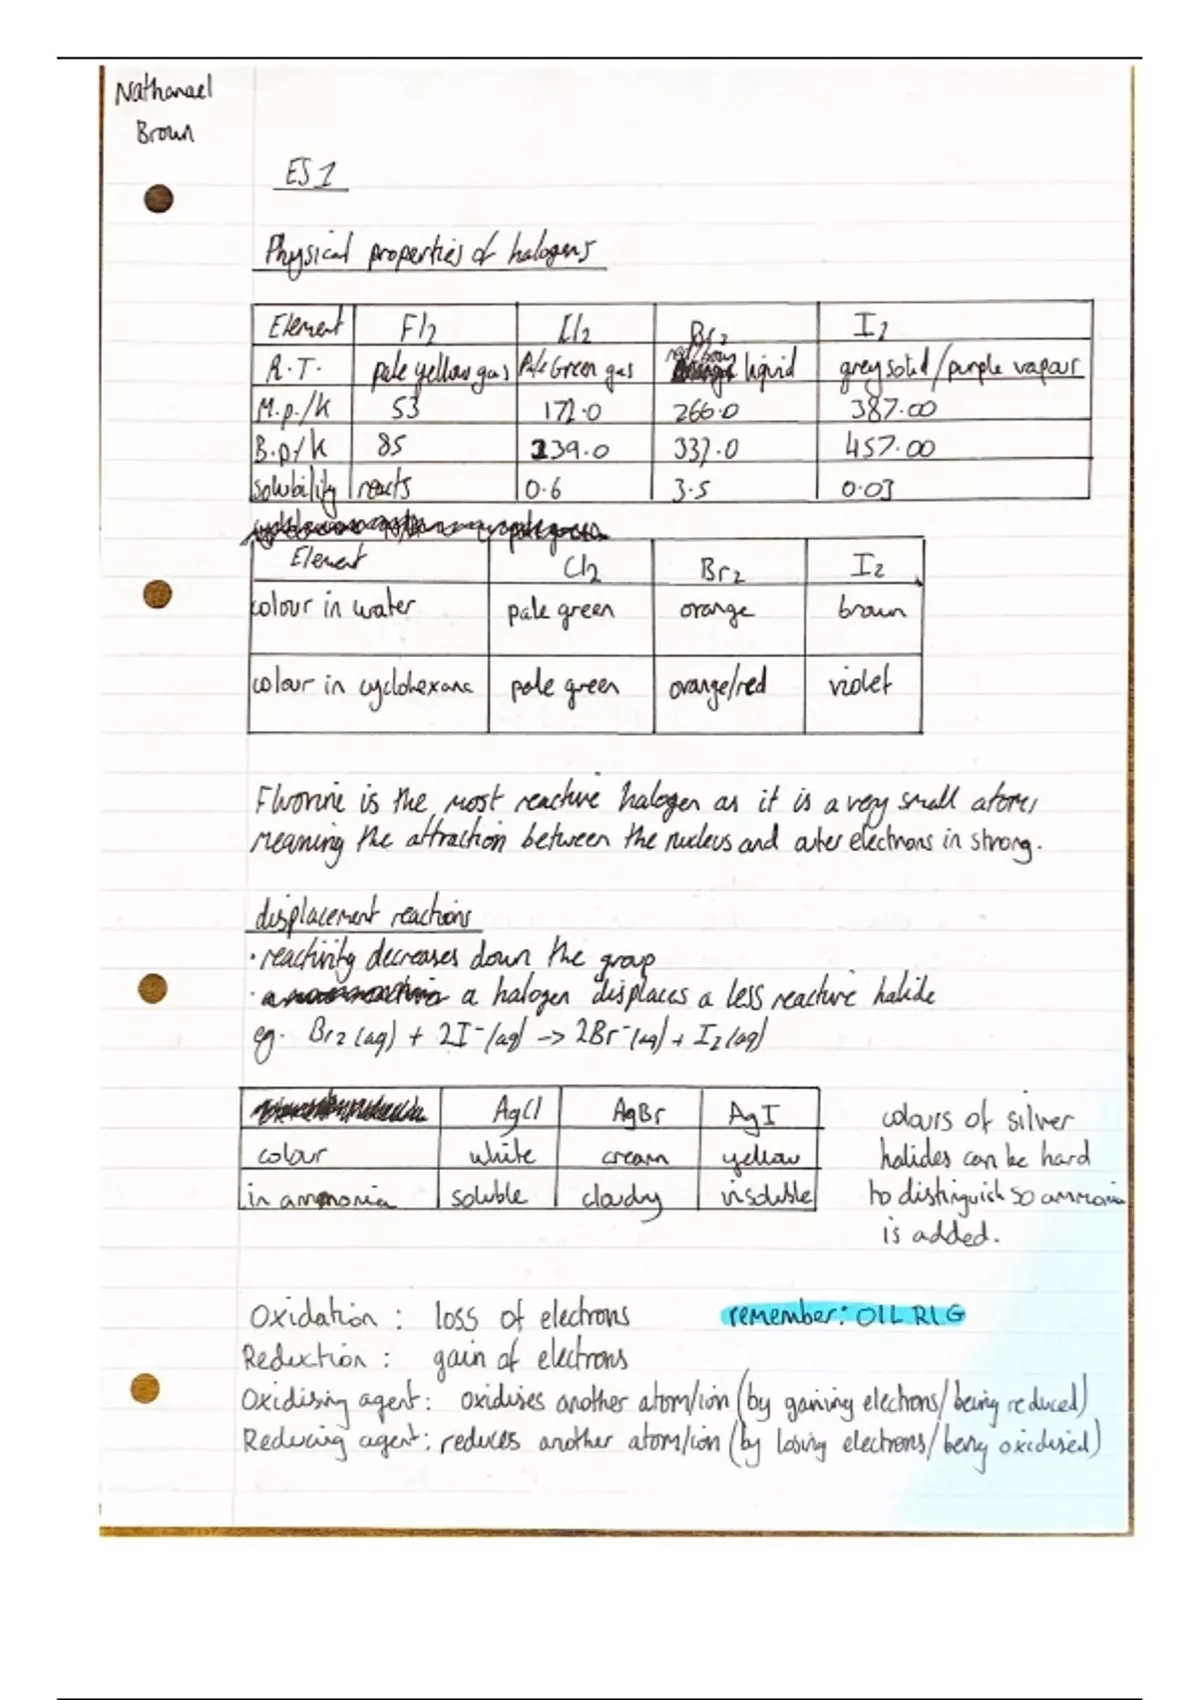 Nathanael
Brown
ES1
Physical properties of halogens
Element Fl2 Cl2 Br2 I2
R.T. pale yellow gas Pale Green gas red/brown liquid grey solid/purple vapour
M.p./K 53 172.0 266.0 387.00
B.p/K 85 239.0 332.0 457.00
solubility reacts 0.6 3.5 0.03
Element Cl2 Br2 I2
colour in water pale green orange brown
colour in cyclohexane pale green orange/red violet
Fluorine is the most reactive halogen as it is a very small atom,
meaning the attraction between the nucleus and outer electrons in strong.
displacement reactions
· reactivity decreases down the group
· a halogen displaces a less reactive halide
eg. Br2(aq) + 2I-(aq) -> 2Br-(aq) + I2(aq)
AgCl AgBr AgI
colour white cream yellow
in ammonia soluble cloudy insoluble
colours of silver
halides can be hard
to distinguish so ammonia
is added.
Oxidation : loss of electrons remember: OIL RIG
Reduction : gain of electrons
Oxidising agent: oxidises another atom/ion (by gaining electrons/being reduced)
Reducing agent: reduces another atom/ion (by losing electrons/being oxidised)